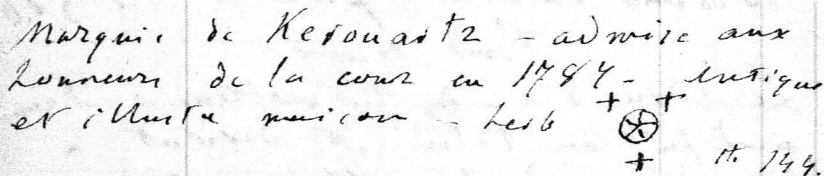 Marquis de Kerouartz - admise aux
honneurs de la cour en 1784 - Antique
et illustre maison - Leob
H. 144.